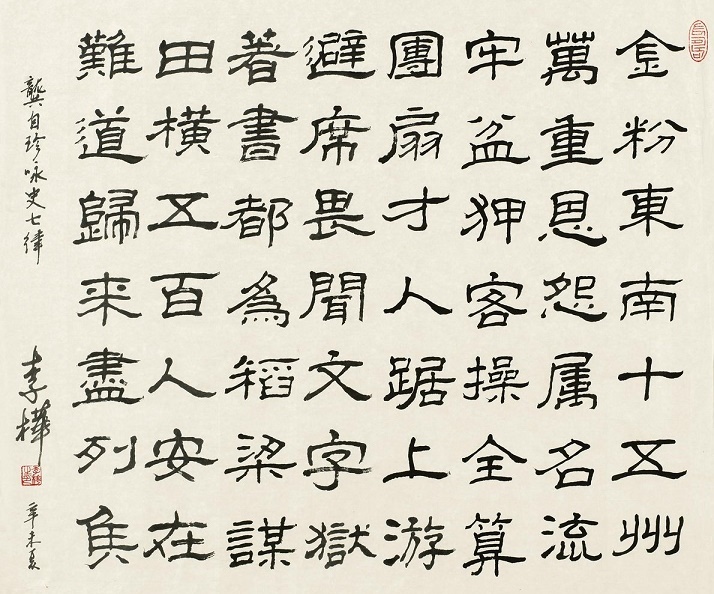 金粉東南十五州
萬重恩怨属名流
牢盆狎客操全算
團扇才人踞上游
避席畏聞文字獄
著書都為稻粱謀
田橫五百人安在
難道歸来盡列侯
龔自珍咏史七律
李樺
辛未夏